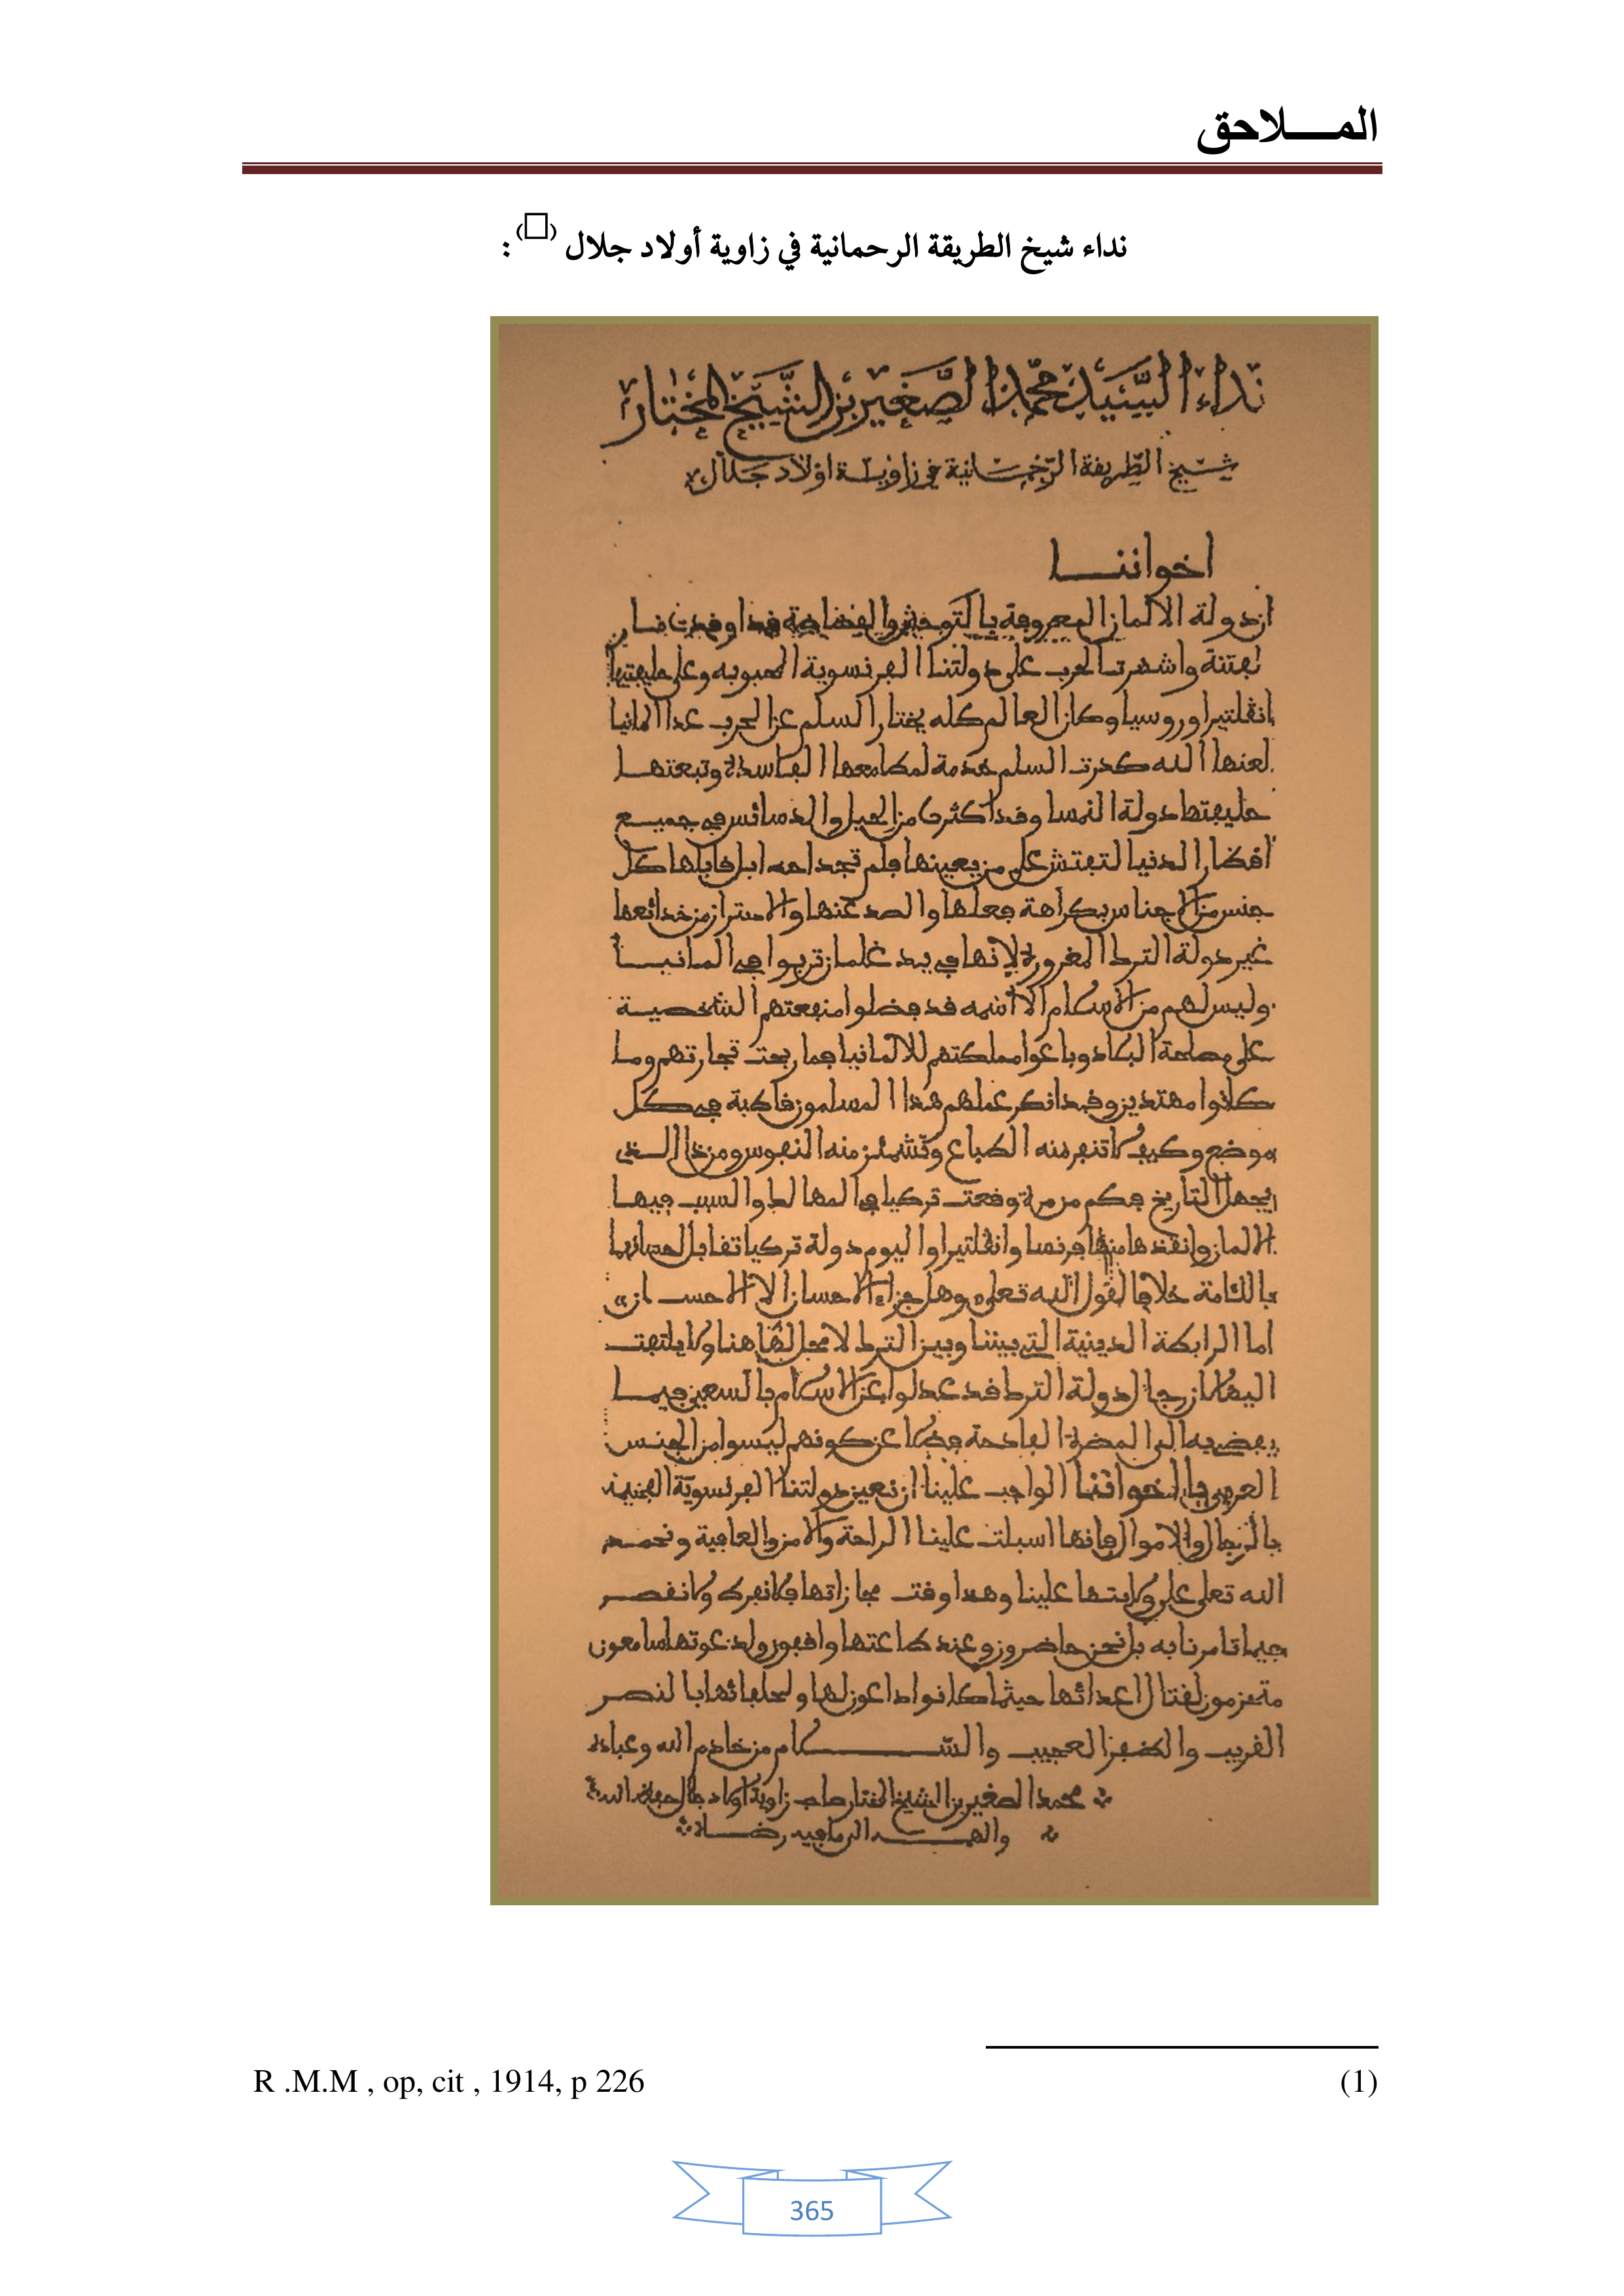 المـــــلاحق
نداء شيخ الطريقة الرحمانية في زاوية أولاد جلال (□) :
نداء السيد محمد الصغير بن الشيخ المختار
شيخ الطريقة الرحمانية في زاوية اولاد جلال
اخواننا
ان دولة الالمان المعروفة بالتوحش والفضاضة قد اوقدت نار
الفتنة واشهرت الحرب على دولتنا الفرنسوية المحبوبة وعلى حليفتيها
انقلتيرا وروسيا وكان العالم كله يختار السلم عن الحرب عدا المانيا
لعنها الله كدرت السلم خدمة لمطامعها الفاسدة وتبعتها
حليفتها دولة النمسا وقد اكثرت من الحيل والدسائس في جميع
أقطار الدنيا لتفتش على من يعينها فلم تجد احدا بل قابلها كل
جنس من الاجناس بكراهة فعلها والصد عنها والاحتراز من خدائعها
غير دولة الترك المغرورة لانها في يد غلمان تربوا في المانيا
وليس لهم من الاسلام الا اسمه قد فضلوا منفعتهم الشخصية
على مصلحة البلاد وباعوا مملكتهم للالمانيا فما ربحت تجارتهم وما
كانوا مهتدين وقد انكر عملهم هذا المسلمون قاطبة في كل
موضع وكيف لا تنفر منه الطباع وتشمئز منه النفوس ومن ذا الذي
يجهل التاريخ فكم من مرة وقعت تركيا في المهالك والسبب فيها
الالمان وانقذها منها فرنسا وانقلتيرا واليوم دولة تركيا تقابل احسانهما
بالئامة خلافا لقول الله تعلى وهل جزاء الاحسان الا الاحسان
اما الرابطة الدينية التي بيننا وبين الترك لا محل لها هنا ولا يلتفت
اليها لان رجال دولة الترك قد عدلوا عن الاسلام بالسعي فيما
يفضي به الى المضرة الفادحة فضلا عن كونهم ليسوا من الجنس
العربي يا اخواننا الواجب علينا ان نعين دولتنا الفرنسوية الفخيمة
بالرجال والاموال فانها اسبلت علينا الراحة والامن والعافية ونحمد
الله تعلى على ولايتها علينا وهذا وقت مجازاتها فلا نفرط ولا نقصر
فيما تامرنا به بل نحن حاضرون وعند طاعتها واقفون ولدعوتها سامعون
متحزمون لقتال اعدائها حيثما كانوا داعون لها ولحلفائها بالنصر
القريب والظفر العجيب والسلام من خادم الله وعباده
محمد الصغير بن الشيخ المختار صاحب زاوية اولاد جلال
R .M.M , op, cit , 1914, p 226 (1)
365